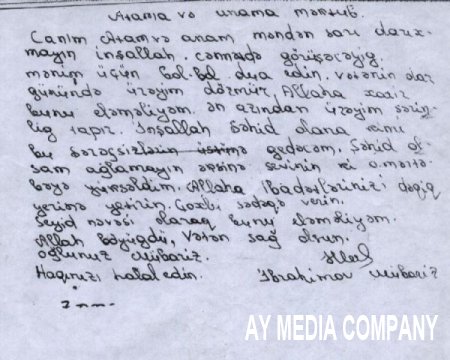 Atama və anama məktub.
Canım Atam və anam məndən sarı darıx-
mayın inşallah. cənnətdə görüşəcəyig.
mənim üçün bol-bol dua edin. vətənin dar
günündə ürəyim dözmür, Allaha xatir
bunu eləməliyəm. ən azından ürəyim sərin-
lig tapır. İnşallah Şəhid olana kimi
bu şərəfsizlərin üstünə gedəcəm. Şəhid ol-
sam ağlamayın əksinə sevinin ki o mərtə-
bəyə yüksəldim. Allaha ibadətlərinizi dəqiq
yerinə yetirin. Çoxlu sədəqə verin.
Seyid nəvəsi olaraq bunu eləməliyəm.
Allah böyügdü, Vətən sağ olsun.
oğlunuz Mübariz.
Haqqınızı halal edin. İbrahimov Mübariz
AY MEDIA COMPANY